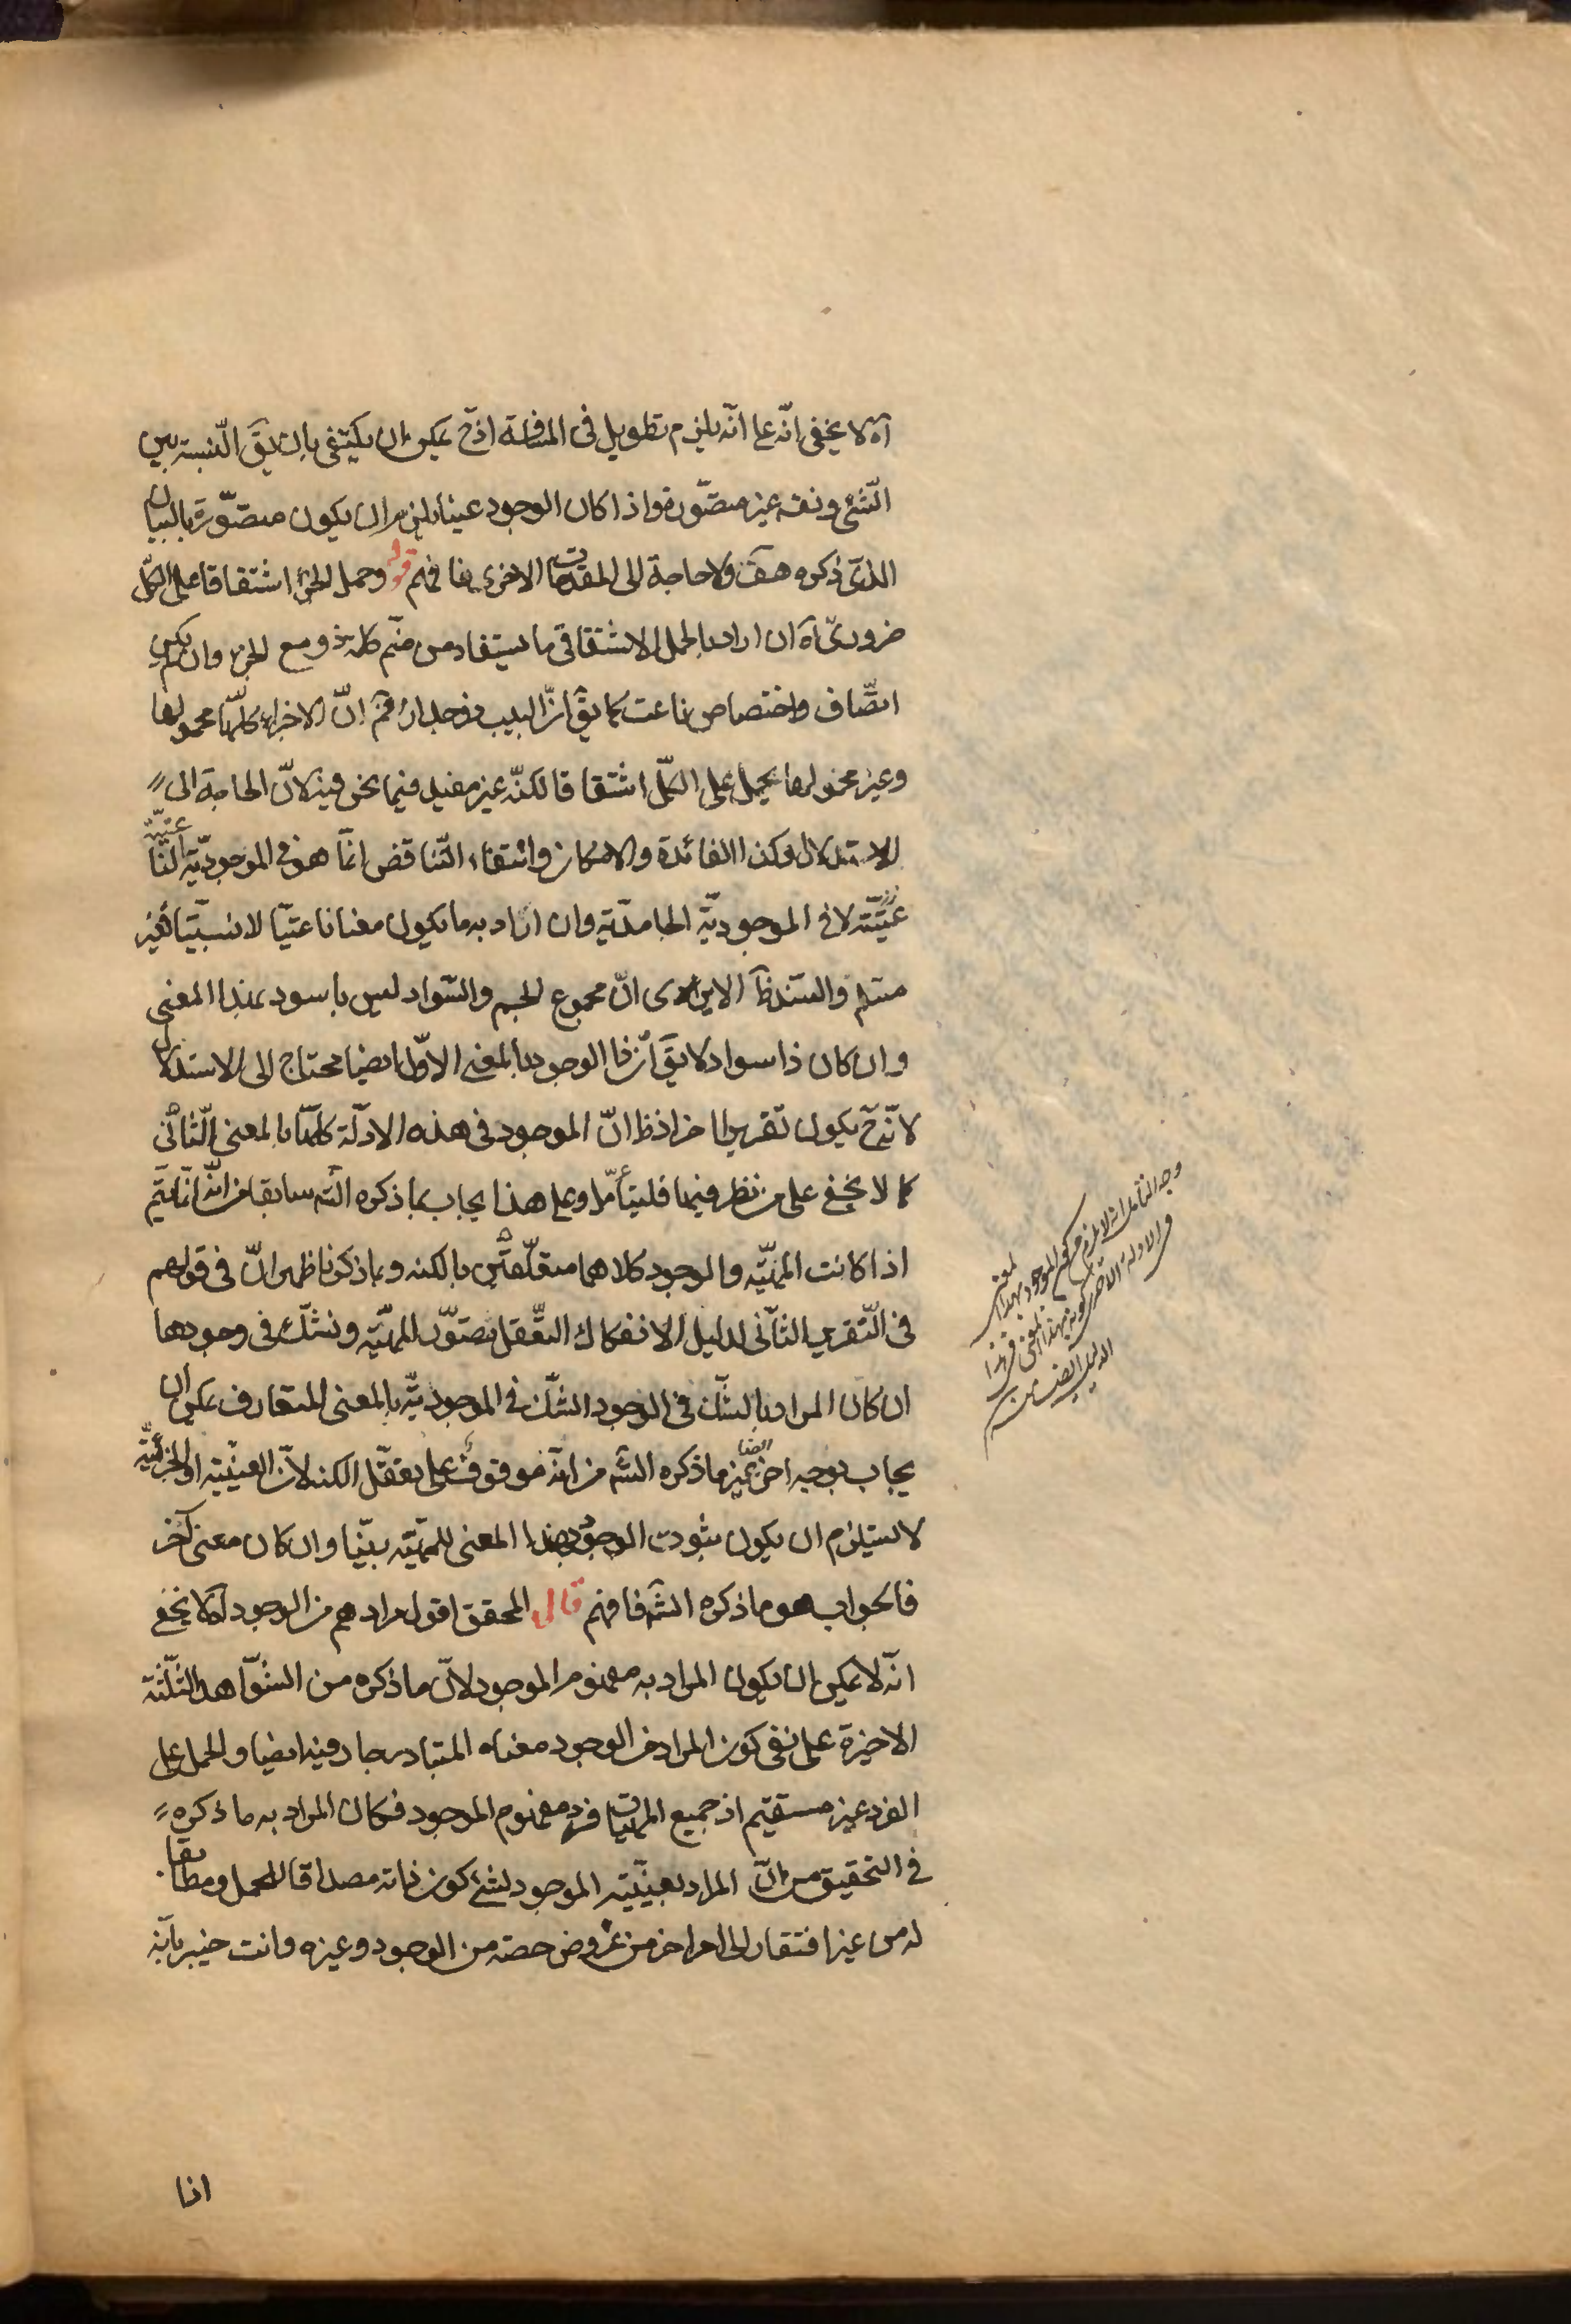 آه لا يخفى انّه علی انّه يلزم تطويل فى المسافة اذ ح يمكن ان يكتفى بان يقَ النّسبة بين
الشّئ ونفسه غير متصوّرة واذا كان الوجود عينا يلزم ان يكون متصوّرة بالبيان
الذى ذكره هفَ ولا حاجة الى المقدمات الاخرى فافهم قوله وحمل الجزء اشتقاقا على الكلّ
ضرورىّ آه ان اراد بالحمل الاشتقاقى ما يستفاد من ضمّ كلمة ذو مع الجزء وان لم يكن
اتّصاف واختصاص ناعت كما يقَ انّ البيت ذو جدار فمَ انّ الاجزاء كلّها محمولها
وغير محمولها يحمل على الكلّ اشتقاقا لكنّه غير مفيد فيما نحن فيه لانّ الحاجة الى
الاستدلال وكذا الفائدة والامكان وانتفاء التّناقض انّما هو فى الموجوديّة النّا
عتيّة لا فى الموجوديّة الجامديّة وان اراد به ما يكون معنا ناعتيّا لا نسبيّا فغير
مسلم والسند ظَ الا يرى انّ مجموع الجسم والسّواد ليس باسود بهذا المعنى
وان كان ذا سواد لا يقَ انّ ذا الوجود بالمعنى الاوّل ايضا محتاج الى الاستدلال
لانّه ح يكون تقريرا اخر اذ ظ انّ الموجود فى هذه الادلّة كلّها بالمعنى الثّانى
كما لا يخفى على من نظر فيها فليتأمّل وعلى هذا يجاب بما ذكره الشَه سابقا من انّه انّما يتمّ
اذا كانت المهيّة والوجود كلاهما متعقّلَين بالكنه وبما ذكرنا ظهر انّ فى قولهم
فى التّقرير الثّانى لدليل الانفكاك التعّقل نتصوّر المهيّة ونشكّ فى وجودها
ان كان المراد بالشكّ فى الوجود الشّك فى الموجوديّة بالمعنى المتعارف يمكن ان
يجاب بوجه اخر ايضا غير ما ذكره الشَه من انّه موقوف على تعقّل الكنه لانّ العينيّة او الجزئيّة
لا يستلزم ان يكون ثبوت الوجود بهذا المعنى للمهيّة بيّنا وان كان معنى آخر
فالجواب هو ما ذكره الشَه فافهم قال المحقق اقول مرادهم من الوجود آه لا يخفى
انّه لا يمكن ان يكون المراد به مفهوم الموجود لانّ ما ذكره من الشّواهد الثّلثة
الاخيرة على نفى كون المراد من الوجود معناه المتبادر جار فيه ايضا والحمل على
الفرد غير مستقيم اذ جميع المهيات فرد مفهوم الموجود فكان المراد به ما ذكره
فى التحقيق من انّ المراد بعينيّة الموجود لشئ كون ذاته مصداقا للحمل ومطابقا
له من غير افتقار الى امر اخر من عروض حصته من الوجود وغيره وانت خبير بانّه
وجه التأمل انه لا يلزم من كون الموجود بهذا المعنى
فى الادلة الاخرى كونه بهذا المعنى فى هذا
الدليل ايضا
انا